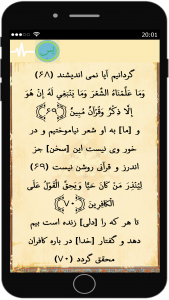 20:01
گردانیم آیا نمی اندیشند (۶۸)
وَمَا عَلَّمْنَاهُ الشِّعْرَ وَمَا يَنْبَغِي لَهُ إِنْ هُوَ
إِلَّا ذِكْرٌ وَقُرْآنٌ مُبِينٌ ﴿۶۹﴾
و [ما] به او شعر نیاموختیم و در
خور وی نیست این [سخن] جز
اندرز و قرآنی روشن نیست (۶۹)
لِيُنْذِرَ مَنْ كَانَ حَيًّا وَيَحِقَّ الْقَوْلُ عَلَى
الْكَافِرِينَ ﴿۷۰﴾
تا هر که را [دلی] زنده است بیم
دهد و گفتار [خدا] در باره کافران
محقق گردد (۷۰)